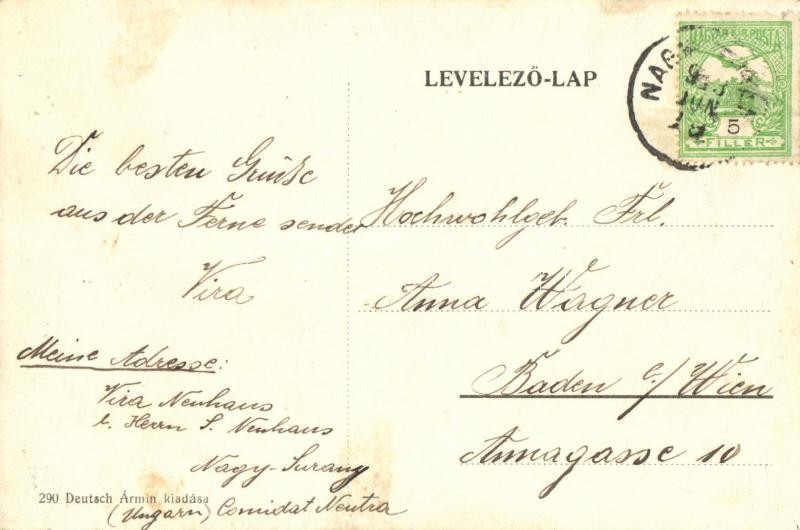 LEVELEZŐ-LAP
MAGY. KIR. POSTA
5
FILLÉR
NAGY
JUN
Die besten Grüße
aus der Ferne sendet
Vira
Meine Adresse:
Vira Neuhaus
b. Herrn S. Neuhaus
Nagy-Surany
(Ungarn) Comidat Neutra
Hochwohlgeb. Frl.
Anna Wagner
Baden b/Wien
Annagasse 10
290 Deutsch Ármin kiadása